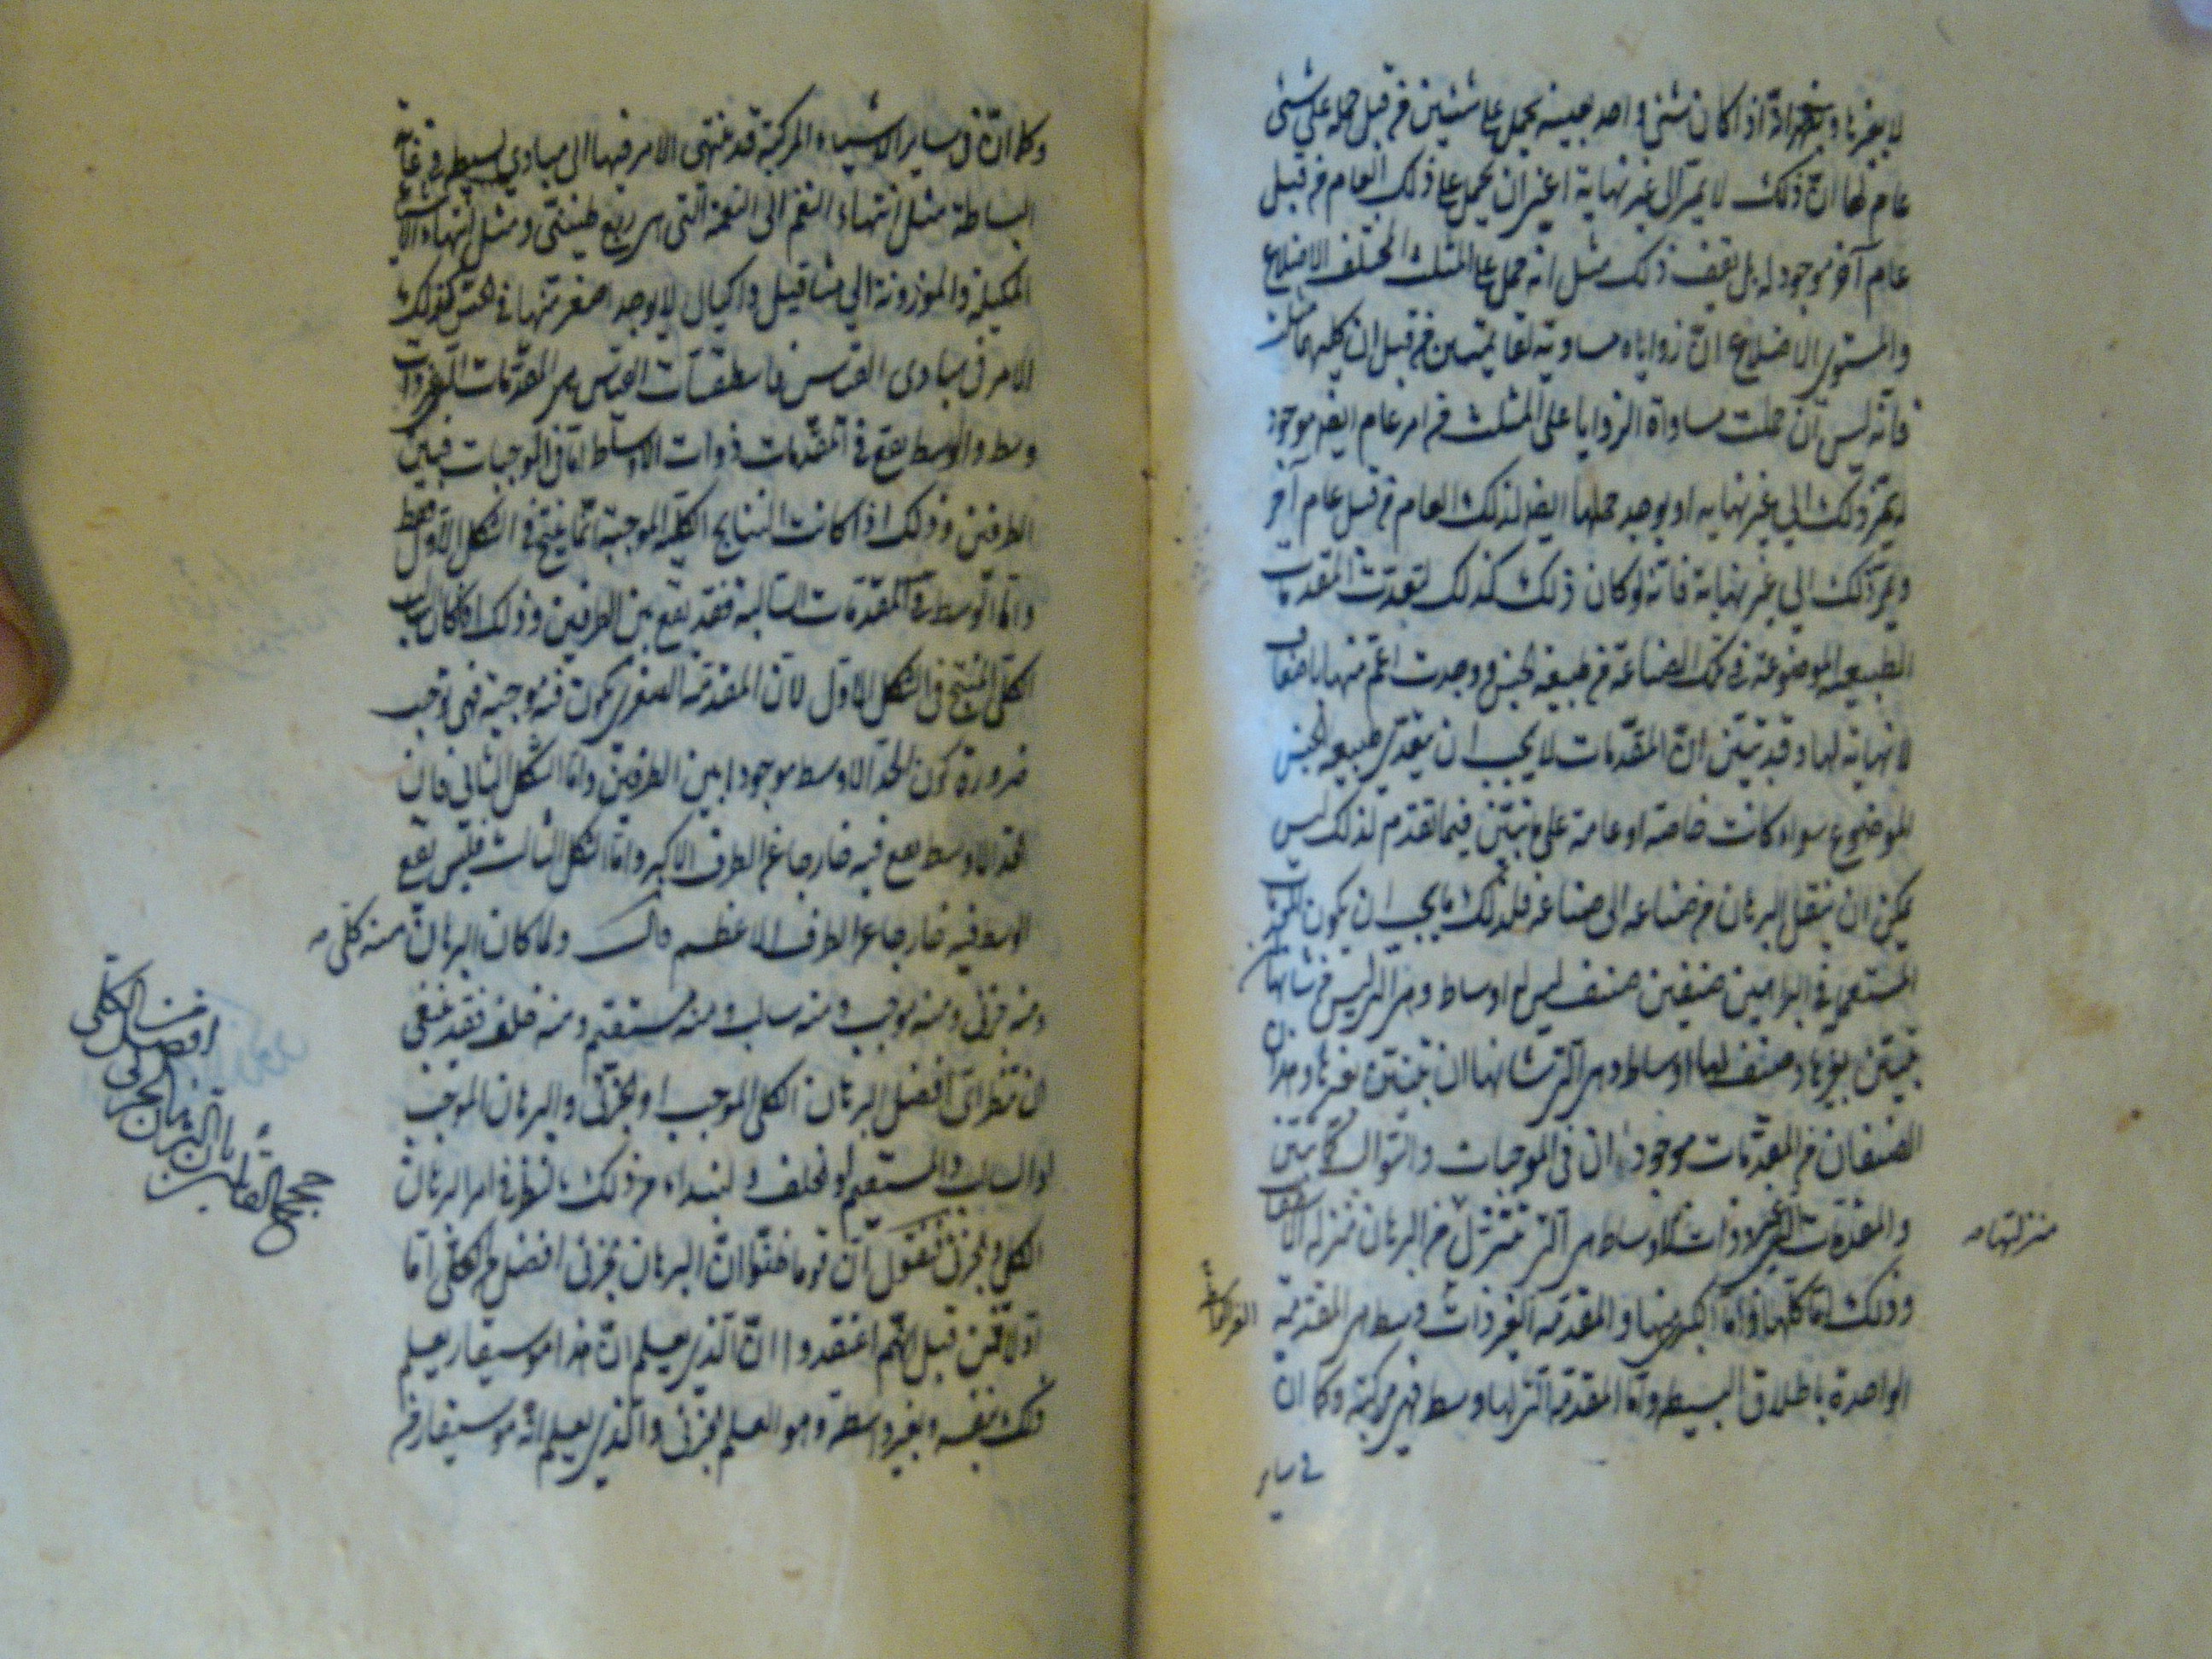 لا بغيرها ويظهر انه اذا كان شئ واحد بعينه يحمل على شيئين من قبل حمله على شئ
عام لهما ان ذلك لا يمر الى غير نهاية اعنى ان يحمل على ذلك العام من قبل
عام آخر موجود له بل يقف ذلك مثل انه حمل على المثلث المختلف الاضلاع
والمستوى الاضلاع ان زواياه مساوية لقائمتين من قبل ان كليهما مثلث
فانه ليس ان حملت مساواة الزوايا على المثلث من امر عام ايضا موجود
يمر ذلك الى غير نهاية او يوجد حملها ايضا لذلك العام من قبل عام آخر
ويمر ذلك الى غير نهاية فانه لو كان ذلك كذلك لتعدت المقدمات
الطبيعة الموضوعة فى تلك الصناعة من طبيعة الجنس ووجدت اعم منها باضعاف
لا نهاية لها وقد تبين ان المقدمات لا يجب ان يتعدى طبيعة الجنس
الموضوع سواء كانت خاصة او عامة على ما تبين فيما تقدم لذلك ليس
يمكن ان ينقل البرهان من صناعة الى صناعة فلذلك ما يجب ان يكون المقدمات
المستعملة فى البراهين صنفين صنف ليس له اوساط وهى التى ليس من شانها ان
تتبين بغيرها وصنف لها اوساط وهى التى شانها ان تتبين بغيرها وهذان
الصنفان من المقدمات موجودان فى الموجبات والسوالب
والمقدمات الغير ذوات الاوساط هى التى تتنزل من البرهان منزلة الاسطقسات
منزلتها
وذلك اما كلها واما اكثرها والمقدمة الغير ذات وسط هى المقدمة
الواحدة باطلاق البسيطة واما المقدمة التى لها وسط فهى مركبة وكما ان
فى ساير
وكما ان فى ساير الاشياء المركبة قد ينتهى الامر فيها الى مبادى بسيطة فى غاية
البساطة مثل انتهاء النغم الى النغمة التى هى ربع طنينى ومثل انتهاء الاشياء
المكيلة والموزونة الى مثاقيل واكيال لا يوجد اصغر منها فى الحس كذلك
الامر فى مبادى القياس فاسطقسات القياس هى المقدمات الغير ذوات
وسط والوسط يقع فى المقدمات ذوات الاوساط اما فى الموجبات فبين
الطرفين وذلك اذا كانت النتايج الكلية الموجبة انما ينتج فى الشكل الاول فقط
واما الوسط فى المقدمات السالبة فقد يقع بين الطرفين وذلك اذا كان السالب
الكلى المنتج فى الشكل الاول لان المقدمة الصغرى يكون فيه موجبة فهى توجب
ضرورة كون الحد الاوسط موجودا بين الطرفين واما الشكل الثانى فان
الحد الاوسط يقع فيه خارجا عن الطرف الاكبر واما الشكل الثالث فليس يقع
الوسط فيه خارجا عن الطرف الاعظم قال ولما كان البرهان منه كلى
ومنه جزئى ومنه موجب ومنه سالب ومنه مستقيم ومنه خلف فقد ينبغى
ان ننظر اى افضل البرهان الكلى الموجب او الجزئى والبرهان الموجب
او السالب والمستقيم او الخلف ولنبداء من ذلك بالنظر فى امر البرهان
الكلى والجزئى فنقول ان قوما ظنوا ان البرهان الجزئى افضل من الكلى اما
اولا فمن قبل انهم اعتقدوا ان الذى يعلم ان هذا موسيقار يعلم
ذلك بنفسه وبغير واسطة وهو العلم الجزئى والذى يعلم انه موسيقار من
حجج القائلين بان البرهان الجزئى
افضل من الكلى